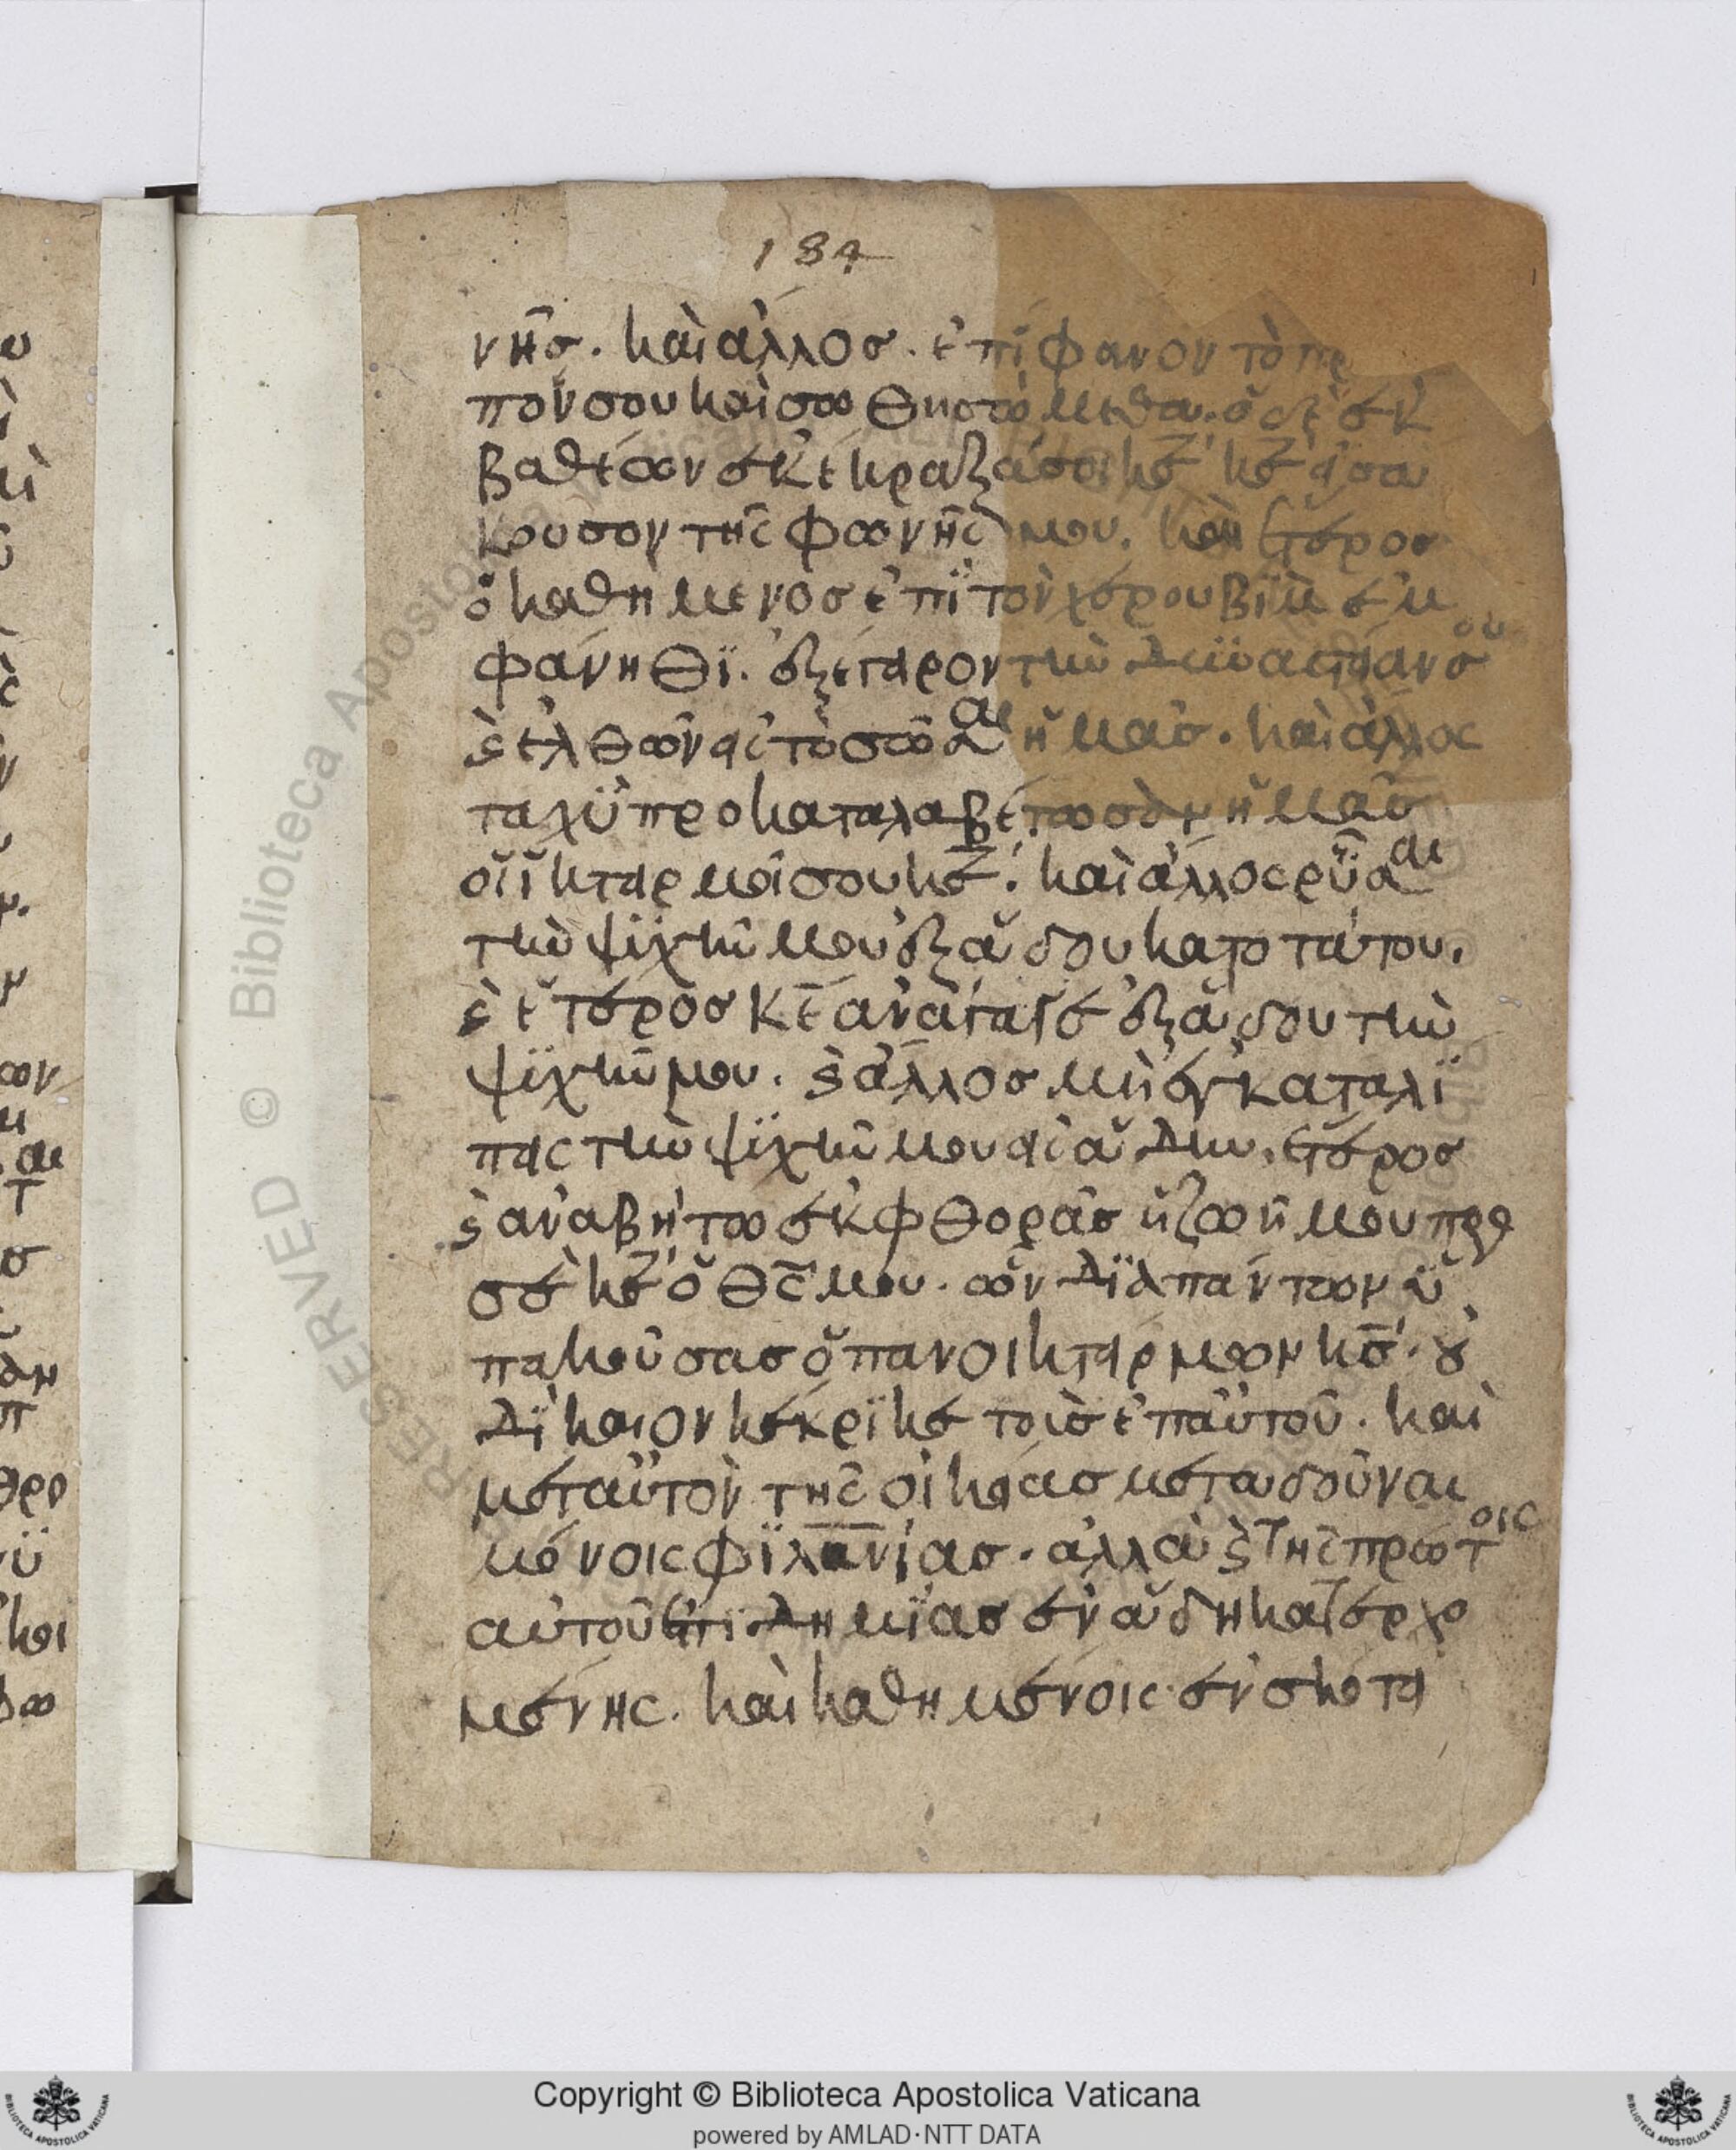 184
νῆσ. καὶ άλλοσ. ἐπϊφανον τὸ πρ
πόν σου καὶ σωθησώμεθα. ὁ δὲ ἐκ
βαθέων ἐκέκραξά σοι κε̄ κε̄ εἰσα
κουσον τῆς φωνῆς μου. καὶ ἕτερος
ὁ καθημενοσ ἐπϊ τὸν χερουβϊμ ἐμ
φάνηθϊ. ἐξέγειρον τὴν δυναστείαν σου
κ̀ ελθὼν εἰς τὸ σῶσαι ἡμάσ. καὶ ἀλλος
ταχϋ προκαταλαβέτωσὰν ἡμᾶσ
οἱ ϊκτειρμοί σου κε̄. καὶ ἀλλος ρῦσαι
τὴν ψϊχὴν μου ἐξ ἅδου κατοτάτου.
κ̀ ἕτεροσ κε̄ ἀνάγαγε ἐξ ἅδου τὴν
ψϊχήν μου. κ̀ ἄλλοσ μὴ ἐγκαταλϊ
πεις τὴν ψϊχὴν μου εἰς ἅδην. ἕτεροσ
κ̀ ἀναβήτω ἐκ φθορᾶσ ἡ ζωή μου προ
σὲ κε̄ ὁ θς̄ μου. ὧν δϊὰ πάντων ὑ
πακούσασ ὁ πανοικτείρμων κσ̄. οὐ
δϊκαιον κέκρϊκε τοῖσ ἐπ αὐτοῦ. καὶ
μετ αὐτὸν τῆς οἰκείασ μεταδοῦναι
μόνοις φϊλανίασ. ἀλλὰ κ̀ τῆς πρὼ τοις
αὐτοῦ ἐπϊδημϊασ ἐν ἅδη κατερχο
μένης. καὶ καθημένοις ἐν σκότει
Copyright © Biblioteca Apostolica Vaticana
powered by AMLAD·NTT DATA